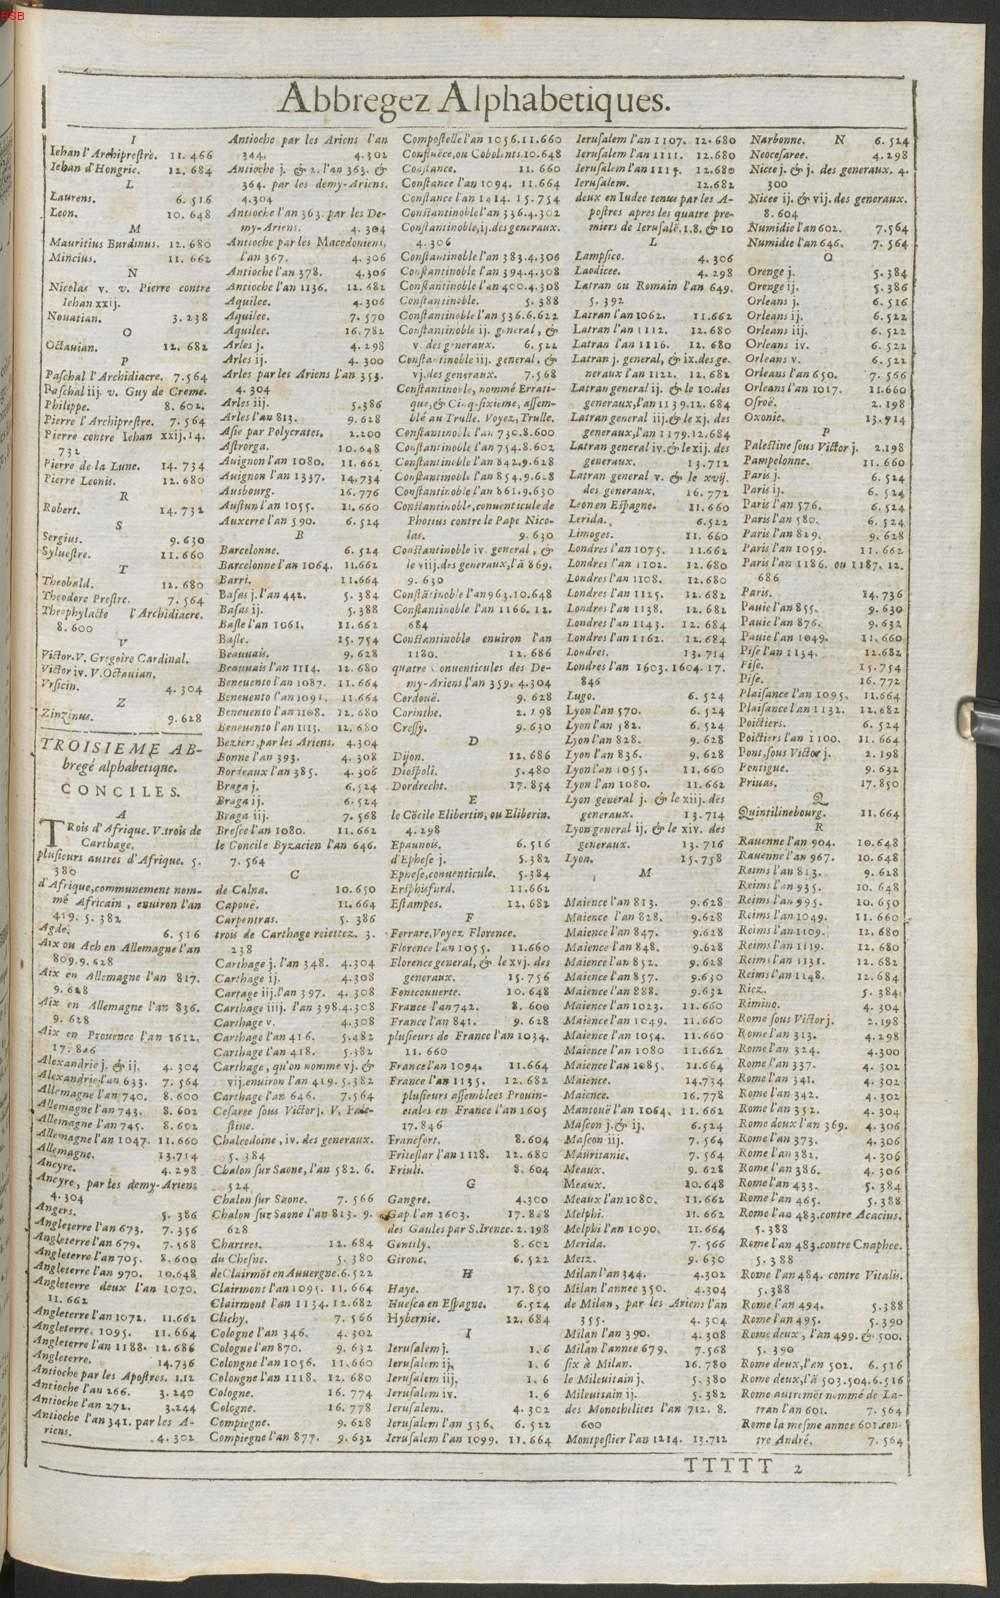 BSB
Abbregez Alphabetiques.
I
Iehan l'Archiprestre. 11. 466
Iehan d'Hongrie. 12. 684
L
Laurens. 6. 516
Leon. 10. 648
M
Mauritius Burdinus. 12. 680
Mincius. 11. 662
N
Nicolas v. v. Pierre contre
Iehan xxij.
Nouatian. 3. 238
O
Octauian. 12. 682
P
Paschal l'Archidiacre. 7. 564
Paschal iij. v. Guy de Creme.
Philippe. 8. 602.
Pierre l'Archiprestre. 7. 564
Pierre contre Iehan xxij. 14.
732
Pierre de la Lune. 14. 734
Pierre Leonis. 12. 680
R
Robert. 14. 732
S
Sergius. 9. 630
Syluestre. 11. 660
T
Theobald. 12. 680
Theodore Prestre. 7. 564
Theophylacte l'Archidiacre.
8. 600
V
Victor. V. Gregoire Cardinal.
Victor iv. V. Octauian.
Vrsicin. 4. 304
Z
Zinzinus. 9. 628
TROISIEME AB-
bregé alphabetique.
CONCILES.
A
TRois d'Afrique. V. trois de
Carthage.
plusieurs autres d'Afrique. 5.
380
d'Afrique, communement nom-
mé Africain, enuiron l'an
419. 5. 382
Agde. 6. 516
Aix ou Ach en Allemagne l'an
809. 9. 628
Aix en Allemagne l'an 817.
9. 628
Aix en Allemagne l'an 836.
9. 628
Aix en Prouence l'an 1612.
17. 846
Alexandrie j. & ij. 4. 304
Alexandrie l'an 633. 7. 564
Allemagne l'an 740. 8. 600
Allemagne l'an 743. 8. 602
Allemagne l'an 745. 8. 602
Allemagne l'an 1047. 11. 660
Allemagne. 13. 714
Ancyre. 4. 298
Ancyre, par les demy-Ariens
4. 304
Angers. 5. 386
Angleterre l'an 673. 7. 356
Angleterre l'an 679. 7. 568
Angleterre l'an 705. 8. 600
Angleterre l'an 970. 10. 648
Angleterre deux l'an 1070.
11. 662
Angleterre l'an 1072. 11. 662
Angleterre. 1095. 11. 664
Angleterre l'an 1188. 12. 686
Angleterre. 14. 736
Antioche par les Apostres. 1. 12
Antioche l'an 266. 3. 240
Antioche l'an 272. 3. 244
Antioche l'an 341. par les A-
riens. 4. 302
Antioche par les Ariens l'an
344. 4. 302
Antioche j. & 2. l'an 363. &
364. par les demy-Ariens.
4. 304
Antioche l'an 363. par les De-
my-Ariens. 4. 304
Antioche par les Macedoniens,
l'an 367. 4. 306
Antioche l'an 378. 4. 306
Antioche l'an 1136. 12. 682
Aquilee. 4. 306
Aquilee. 7. 570
Aquilee. 16. 782
Arles j. 4. 298
Arles ij. 4. 300
Arles par les Ariens l'an 353.
4. 304
Arles iij. 5. 386
Arles l'an 813. 9. 628
Asie par Polycrates. 2. 200
Astrorga. 10. 648
Auignon l'an 1080. 11. 662
Auignon l'an 1337. 14. 734
Ausbourg. 16. 776
Austun l'an 1055. 11. 660
Auxerre l'an 590. 6. 524
B
Barcelonne. 6. 524
Barcelonne l'an 1064. 11. 662
Barri. 11. 664
Basas j. l'an 442. 5. 384
Basas ij. 5. 388
Basle l'an 1061. 11. 662
Basle. 15. 754
Beauuais. 9. 628
Beauuais l'an 1114. 12. 680
Beneuento l'an 1087. 11. 664
Beneuento l'an 1091. 11. 664
Beneuento l'an 1108. 12. 680
Beneuento l'an 1113. 12. 680
Beziers, par les Ariens. 4. 304
Bonne l'an 393. 4. 308
Bordeaux l'an 385. 4. 306
Braga j. 6. 524
Braga ij. 6. 524
Braga iij. 7. 568
Bresce l'an 1080. 11. 662
le Concile Byzacien l'an 646.
7. 564
C
de Calna. 10. 650
Capouë. 11. 664
Carpentras. 5. 386
trois de Carthage reiettez. 3.
238
Carthage j. l'an 348. 4. 304
Carthage ij. 4. 308
Cartage iij. l'an 397. 4. 308
Carthage iiij. l'an 398. 4. 308
Carthage v. 4. 308
Carthage l'an 416. 5. 482
Carthage l'an 418. 5. 382
Carthage, qu'on nomme vj. &
vij. enuiron l'an 419. 5. 382
Carthage l'an 646. 7. 564
Cesaree sous Victor j. V. Pale-
stine.
Chalcedoine, iv. des generaux.
5. 384
Chalon sur Saone, l'an 582. 6.
524
Chalon sur Saone. 7. 566
Chalon sur Saone l'an 813. 9.
628
Chartres. 12. 684
du Chesne. 5. 380
de Clairmõt en Auuergne. 6. 522
Clairmont l'an 1095. 11. 664
Clairmont l'an 1134. 12. 682
Clichy. 7. 566
Cologne l'an 346. 4. 302
Cologne l'an 870. 9. 632
Colongne l'an 1056. 11. 660
Colongne l'an 1118. 12. 680
Cologne. 16. 774
Cologne. 16. 778
Compiegne. 9. 628
Compiegne l'an 877. 9. 632
Compostelle l'an 1056. 11. 660
Confluëce, ou Cobolents. 10. 648
Constance. 11. 660
Constance l'an 1094. 11. 664
Constance l'an 1414. 15. 754
Constantinoble l'an 336. 4. 302
Constantinoble, ij. des generaux.
4. 306
Constantinoble l'an 383. 4. 306
Constantinoble l'an 394. 4. 308
Constantinoble l'an 400. 4. 308
Constantinoble. 5. 388
Constantinoble l'an 536. 6. 622
Constantinoble ij. general, &
v. des generaux. 6. 522
Constantinoble iij. general, &
vj. des generaux. 7. 568
Constantinoble, nommé Errati-
que, & Cinq-sixiéme, assem-
blé au Trulle. Voyez, Trulle.
Constantinoble l'an 730. 8. 600
Constantinoble l'an 754. 8. 602
Constantinoble l'an 842. 9. 628
Constantinoble l'an 854. 9. 628
Constantinoble l'an 861. 9. 630
Constantinoble, conuenticule de
Photius contre le Pape Nico-
las. 9. 630
Constantinoble iv. general, &
le viij. des generaux, l'ã 869.
9. 630
Constãtinoble l'an 963. 10. 648
Constantinoble l'an 1166. 12.
684
Constantinoble enuiron l'an
1180. 12. 686
quatre Conuenticules des De-
my-Ariens l'an 359. 4. 304
Cordouë. 9. 628
Corinthe. 2. 198
Cressy. 9. 630
D
Dijon. 12. 686
Diospoli. 5. 480
Dordrecht. 17. 854
E
le Cõcile Elibertin, ou Eliberin.
4. 298
Epaunois. 6. 516
d'Ephese j. 5. 382
Ephese, conuenticule. 5. 384
Erfphisfurd. 11. 662
Estampes. 12. 682
F
Ferrare. Voyez Florence.
Florence l'an 1055. 11. 660
Florence general, & le xvj. des
generaux. 15. 756
Fontcouuerte. 10. 648
France l'an 742. 8. 600
France l'an 841. 9. 628
plusieurs de France l'an 1034.
11. 660
France l'an 1094. 11. 664
France l'an 1135. 12. 682
plusieurs assemblees Prouin-
ciales en France l'an 1605
17. 846
Francfort. 8. 604
Fritestar l'an 1118. 12. 680
Friuli. 8. 604
G
Gangre. 4. 300
Gap l'an 1603. 17. 848
des Gaules par S. Irenee. 2. 198
Gentily. 8. 602
Girone. 6. 522
H
Haye. 17. 850
Huesca en Espagne. 6. 524
Hybernie. 12. 684
I
Ierusalem j. 1. 6
Ierusalem ij. 1. 6
Ierusalem iij. 1. 6
Ierusalem iv. 1. 6
Ierusalem. 4. 302
Ierusalem l'an 536. 6. 522
Ierusalem l'an 1099. 11. 664
Ierusalem l'an 1107. 12. 680
Ierusalem l'an 1111. 12. 680
Ierusalem l'an 1115. 12. 680
Ierusalem. 12. 682
deux en Iudee tenus par les A-
postres apres les quatre pre-
miers de Ierusalẽ. 1. 8. & 10
L
Lampsico. 4. 306
Laodicee. 4. 298
Latran ou Romain l'an 649.
5. 392
Latran l'an 1062. 11. 662
Latran l'an 1112. 12. 680
Latran l'an 1116. 12. 680
Latran j. general, & ix. des ge-
neraux l'an 1122. 12. 682
Latran general ij. & le 10. des
generaux, l'an 1139. 12. 684
Latran general iij. & le xj. des
generaux, l'an 1179. 12. 684
Latran general iv. & le xij. des
generaux. 13. 712
Latran general v. & le xvij.
des generaux. 16. 772
Leon en Espagne. 11. 660
Lerida. 6. 522
Limoges. 11. 660
Londres l'an 1075. 11. 662
Londres l'an 1102. 12. 680
Londres l'an 1108. 12. 680
Londres l'an 1125. 12. 682
Londres l'an 1138. 12. 682
Londres l'an 1143. 12. 684
Londres l'an 1162. 12. 684
Londres. 13. 714
Londres l'an 1603. 1604. 17.
846
Lugo. 6. 524
Lyon l'an 570. 6. 524
Lyon l'an 582. 6. 524
Lyon l'an 828. 9. 628
Lyon l'an 836. 9. 628
Lyon l'an 1055. 11. 660
Lyon l'an 1080. 11. 662
Lyon general j. & le xiij. des
generaux. 13. 714
Lyon general ij. & le xiv. des
generaux. 13. 716
Lyon. 15. 758
M
Maience l'an 813. 9. 628
Maience l'an 828. 9. 628
Maience l'an 847. 9. 628
Maience l'an 848. 9. 628
Maience l'an 852. 9. 628
Maience l'an 857. 9. 630
Maience l'an 888. 9. 632
Maience l'an 1023. 11. 660
Maience l'an 1049. 11. 660
Maience l'an 1054. 11. 660
Maience l'an 1080 11. 662
Maience l'an 1085. 11. 664
Maience. 14. 734
Maience. 16. 778
Mantouë l'an 1064. 11. 662
Mascon j. & ij. 6. 524
Mascon iij. 7. 564
Mauritanie. 7. 564
Meaux. 9. 628
Meaux. 10. 648
Meaux l'an 1080. 11. 662
Melphi. 11. 662
Melphi l'an 1090. 11. 664
Merida. 7. 566
Metz. 9. 630
Milan l'an 344. 4. 302
Milan l'annee 350. 4. 304
de Milan, par les Ariens l'an
355. 4. 304
Milan l'an 390. 4. 308
Milan l'annee 679. 7. 568
six à Milan. 16. 780
le Mileuitain j. 5. 380
Mileuitain ij. 5. 382
des Monothelites l'an 712. 8.
600
Montpestier l'an 1214. 13. 712
Narbonne. N 6. 524
Neocesaree. 4. 298
Nicee j. & j. des generaux. 4.
300
Nicee ij. & vij. des generaux.
8. 604
Numidie l'an 602. 7. 564
Numidie l'an 646. 7. 564
O
Orenge j. 5. 384
Orenge ij. 5. 386
Orleans j. 6. 516
Orleans ij. 6. 522
Orleans iij. 6. 522
Orleans iv. 6. 522
Orleans v. 6. 522
Orleans l'an 650. 7. 566
Orleans l'an 1017. 11. 660
Osroë. 2. 198
Oxonie. 13. 714
P
Palestine sous Victor j. 2. 198
Pampelonne. 11. 660
Paris j. 6. 524
Paris ij. 6. 524
Paris l'an 576. 6. 524
Paris l'an 580. 6. 524
Paris l'an 829. 9. 628
Paris l'an 1059. 11. 662
Paris l'an 1186. ou 1187. 12.
686
Paris. 14. 736
Pauie l'an 855. 9. 630
Pauie l'an 876. 9. 632
Pauie l'an 1049. 11. 660
Pise l'an 1134. 12. 682
Pise. 15. 754
Pise. 16. 772
Plaisance l'an 1095. 11. 664
Plaisance l'an 1132. 12. 682
Poictiers. 6. 524
Poictiers l'an 1100. 11. 664
Pont, sous Victor j. 2. 198
Pontigue. 9. 632
Priuas. 17. 850
Q
Quintilinebourg. 11. 664
R
Rauenne l'an 904. 10. 648
Rauenne l'an 967. 10. 648
Reims l'an 813. 9. 628
Reims l'an 935. 10. 648
Reims l'an 995. 10. 650
Reims l'an 1049. 11. 660
Reims l'an 1109. 12. 680
Reims l'an 1119. 12. 680
Reims l'an 1131. 12. 682
Reims l'an 1148. 12. 684
Riez. 5. 384
Rimino. 4. 304
Rome sous Victor j. 2. 198
Rome l'an 313. 4. 298
Rome l'an 324. 4. 300
Rome l'an 337. 4. 302
Rome l'an 341. 4. 302
Rome l'an 342. 4. 302
Rome l'an 352. 4. 304
Rome deux l'an 369. 4. 306
Rome l'an 373. 4. 306
Rome l'an 382. 4. 306
Rome l'an 386. 4. 306
Rome l'an 433. 5. 384
Rome l'an 465. 5. 388
Rome l'an 483. contre Acacius.
5. 388
Rome l'an 483. contre Cnaphee.
5. 388
Rome l'an 484. contre Vitalis.
5. 388
Rome l'an 494. 5. 388
Rome l'an 495. 5. 390
Rome deux, l'an 499. & 500.
5. 390
Rome deux, l'an 502. 6. 516
Rome deux, l'ã 503. 504. 6. 516
Rome autremẽt nommé de La-
tran l'an 601. 7. 564
Rome la mesme annee 601. con-
tre André. 7. 564
TTTTT 2